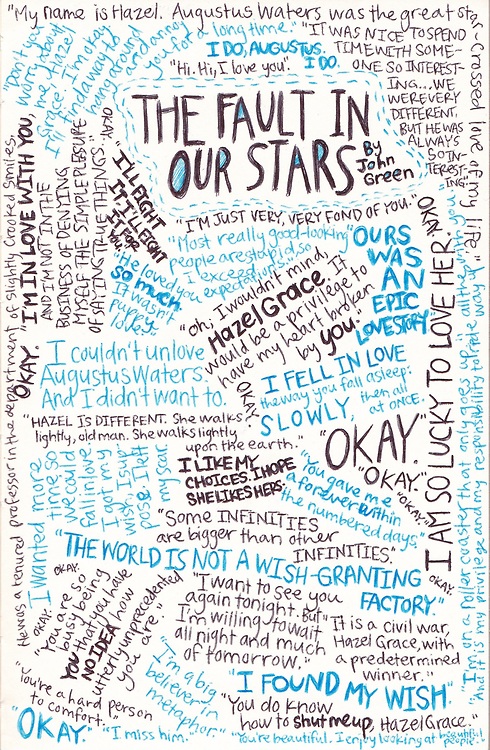 "My name is Hazel. Augustus Waters was the great star-crossed love of my life."
"Don't you worry about me, Hazel Grace. I'm okay. I'll find a way to hang around and annoy you for a long time."
I DO, AUGUSTUS.
I DO.
"Hi. Hi, I love you."
"IT WAS NICE TO SPEND
TIME WITH SOME-
ONE SO INTEREST-
ING...WE
WERE VERY
DIFFERENT,
BUT HE WAS
ALWAYS
SO IN-
TEREST-
ING."
THE FAULT IN
OUR STARS
By
John
Green
OKAY.
"I'LL FIGHT
IT. I'LL FIGHT
IT FOR
YOU."
"I'M IN LOVE WITH YOU,
AND I'M NOT IN THE
BUSINESS OF DENYING
MYSELF THE SIMPLE PLEASURE
OF SAYING TRUE THINGS."
He was a tenured professor in the department of slightly crooked smiles.
OKAY.
"I'M JUST VERY, VERY FOND OF YOU."
"Most really good-looking
people are stupid, so
I exceed
expectations."
"He loved you
so much.
It wasn't
puppy
love."
OURS
WAS
AN
EPIC
LOVE STORY
OKAY.
I AM SO LUCKY TO LOVE HER,
"Oh, I wouldn't mind,
Hazel Grace. It
would be a privilege to
have my heart broken
by you."
I couldn't unlove
Augustus Waters.
And I didn't want to.
I FELL IN LOVE
the way you fall asleep:
SLOWLY, then all
at ONCE.
OKAY.
"HAZEL IS DIFFERENT. She walks
lightly, old man. She walks lightly
upon the earth."
"OKAY."
"OKAY."
"OKAY."
I LIKE MY
CHOICES. I HOPE
SHE LIKES HERS.
I wanted more
time so
we could
fall in love.
I got my
wish, I sup-
pose. I left
my scar.
"You gave me
a forever within
the numbered days."
"Some INFINITIES
are bigger than other
INFINITIES."
"THE WORLD IS NOT A WISH-GRANTING
FACTORY."
OKAY.
OKAY.
OKAY.
"You are so
busy being
YOU that you have
NO IDEA how
utterly unprecedented
you
are."
"I want to see you
again tonight. But
I'm willing to wait
all night and much
of tomorrow."
"It is a civil war,
Hazel Grace, with
a predetermined
winner."
"I'm on a roller coaster that only goes up
And it is my privilege and my responsibility to ride all the way up with you."
"I'm a big
believer in
metaphor."
"I FOUND MY WISH"
"You do know
how to shut me up, Hazel Grace."
"You're a hard person
to comfort."
"OKAY."
"I miss him."
"You're beautiful. I enjoy looking at beautiful
people."